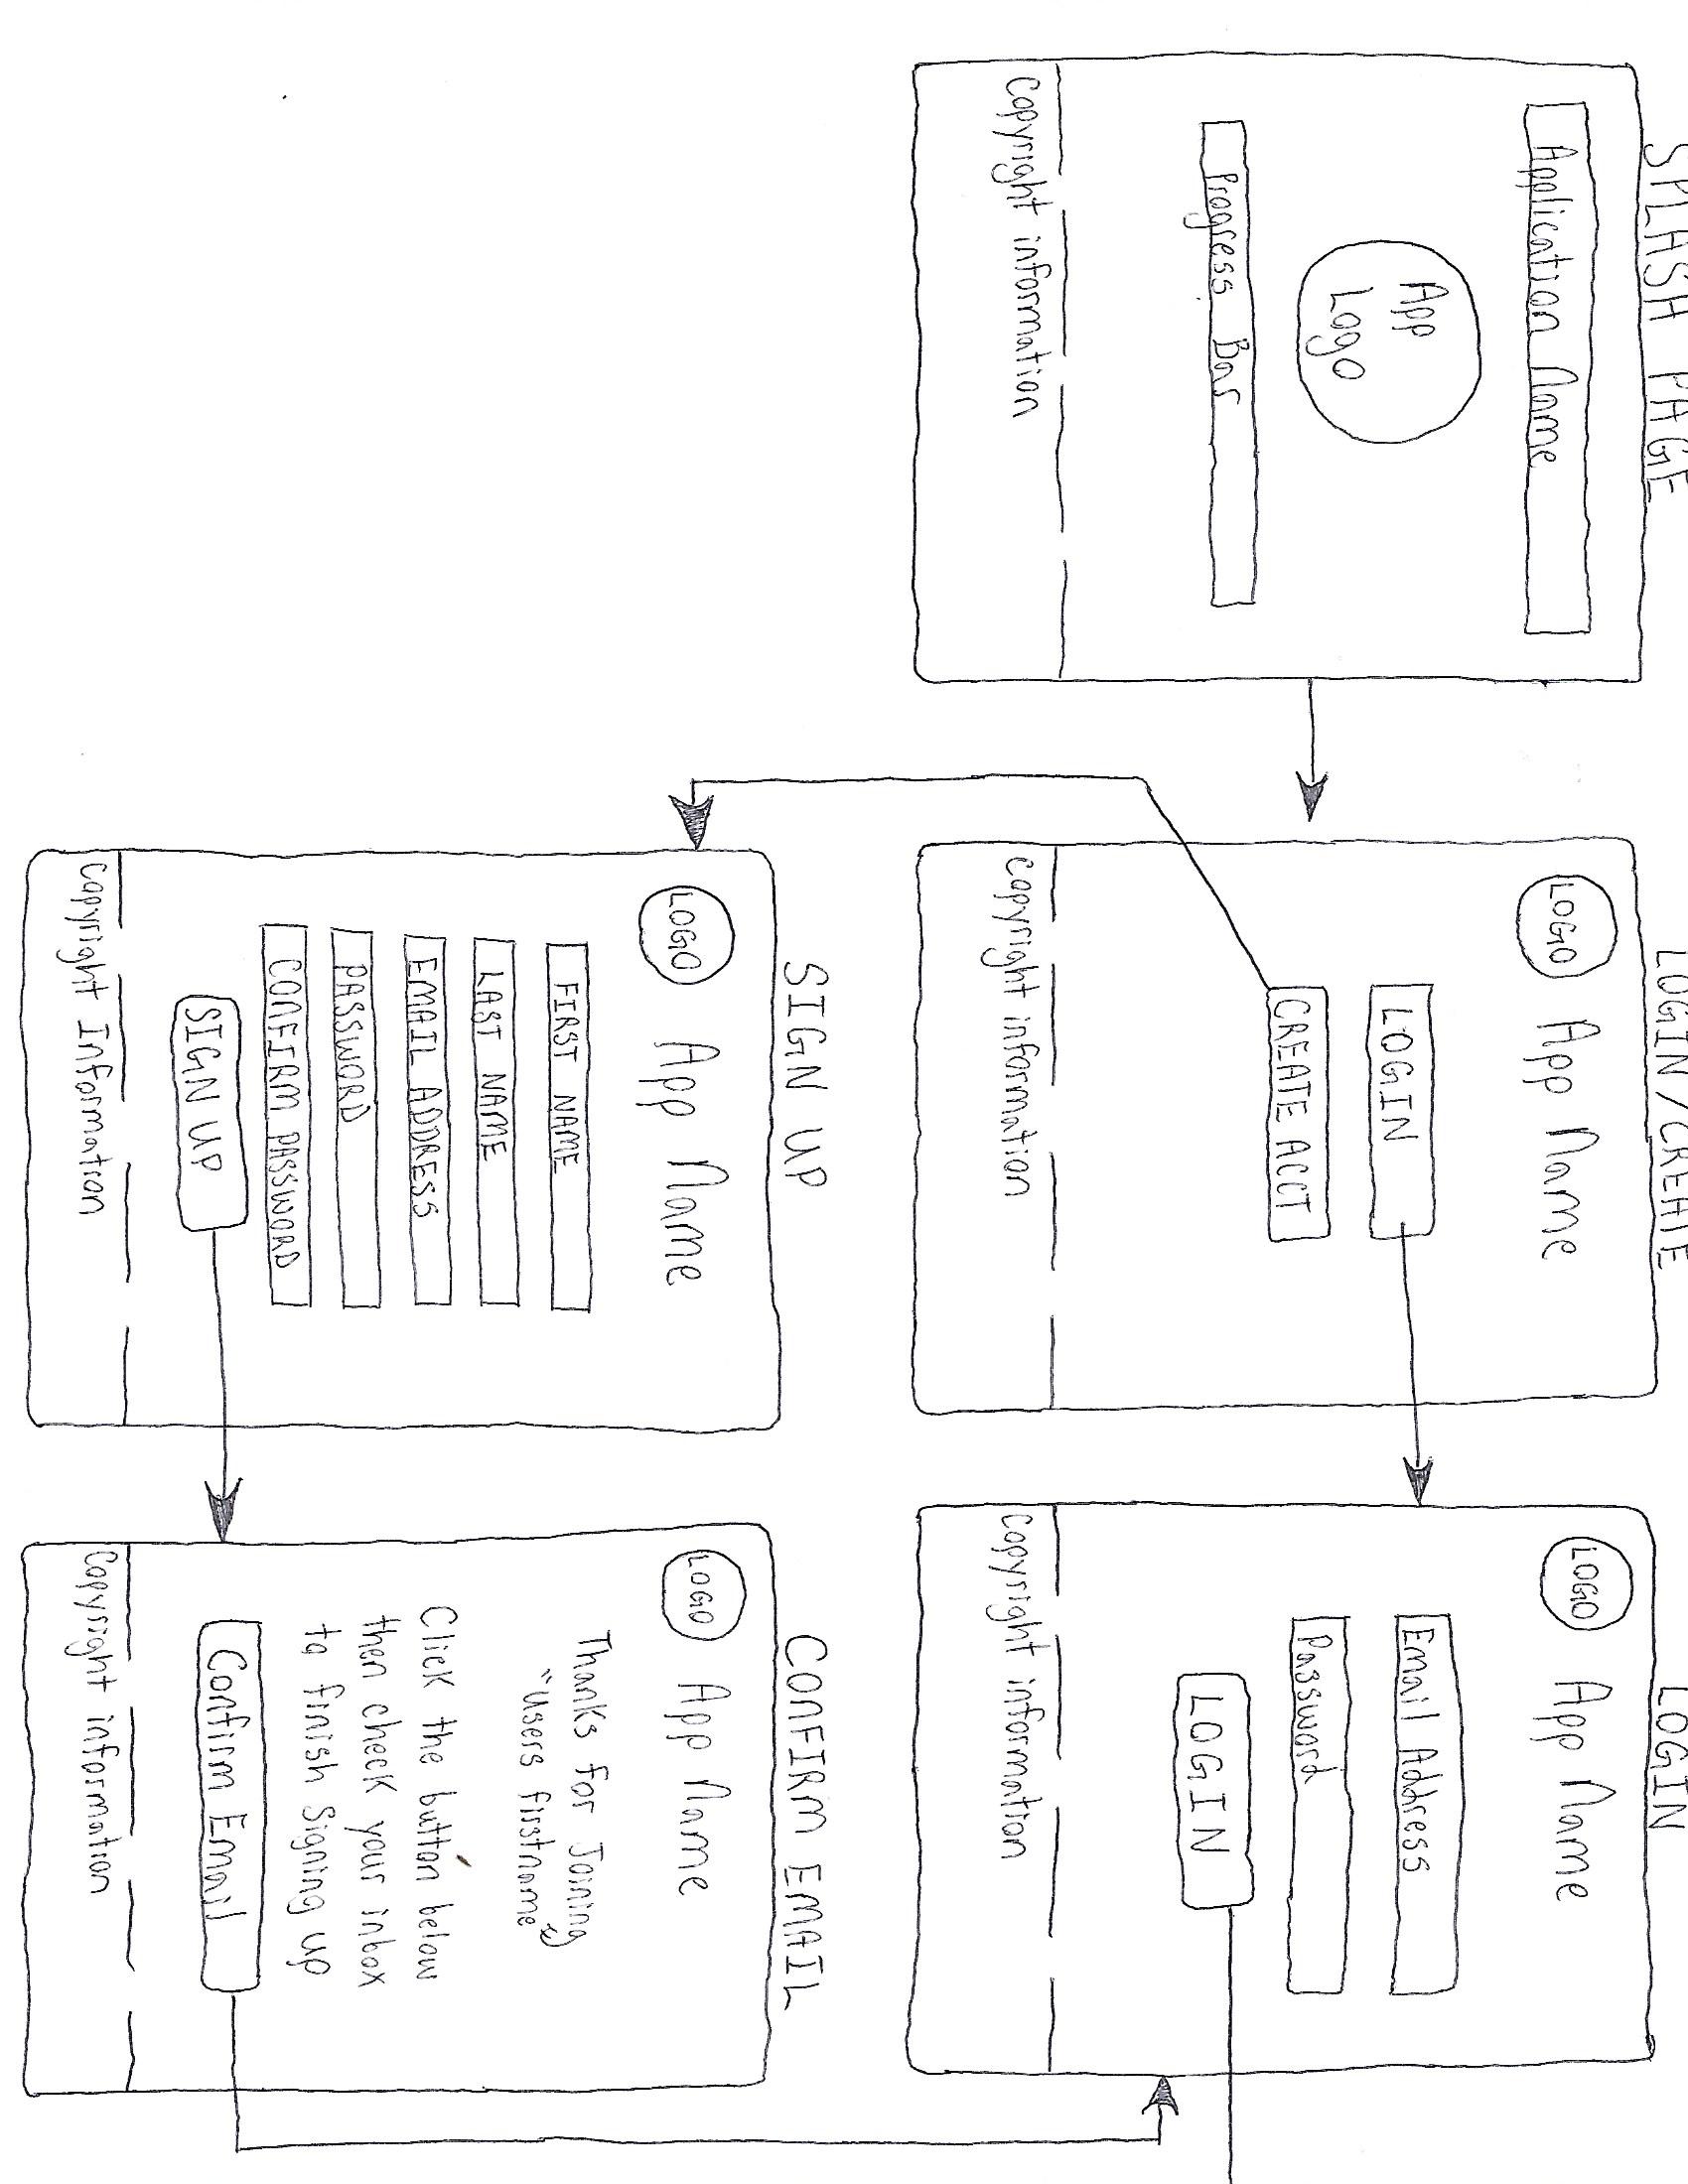 SPLASH PAGE
Application Name
App
Logo
Progress Bar
Copyright information
LOGIN/CREATE
LOGO App Name
LOGIN
CREATE ACCT
Copyright information
LOGIN
LOGO App Name
Email Address
Password
LOGIN
Copyright information
SIGN UP
LOGO App Name
FIRST NAME
LAST NAME
EMAIL ADDRESS
PASSWORD
CONFIRM PASSWORD
SIGN UP
Copyright Information
CONFIRM EMAIL
LOGO App Name
Thanks for Joining
"Users firstname"
Click the button below
then check your inbox
to finish signing up
Confirm Email
Copyright information